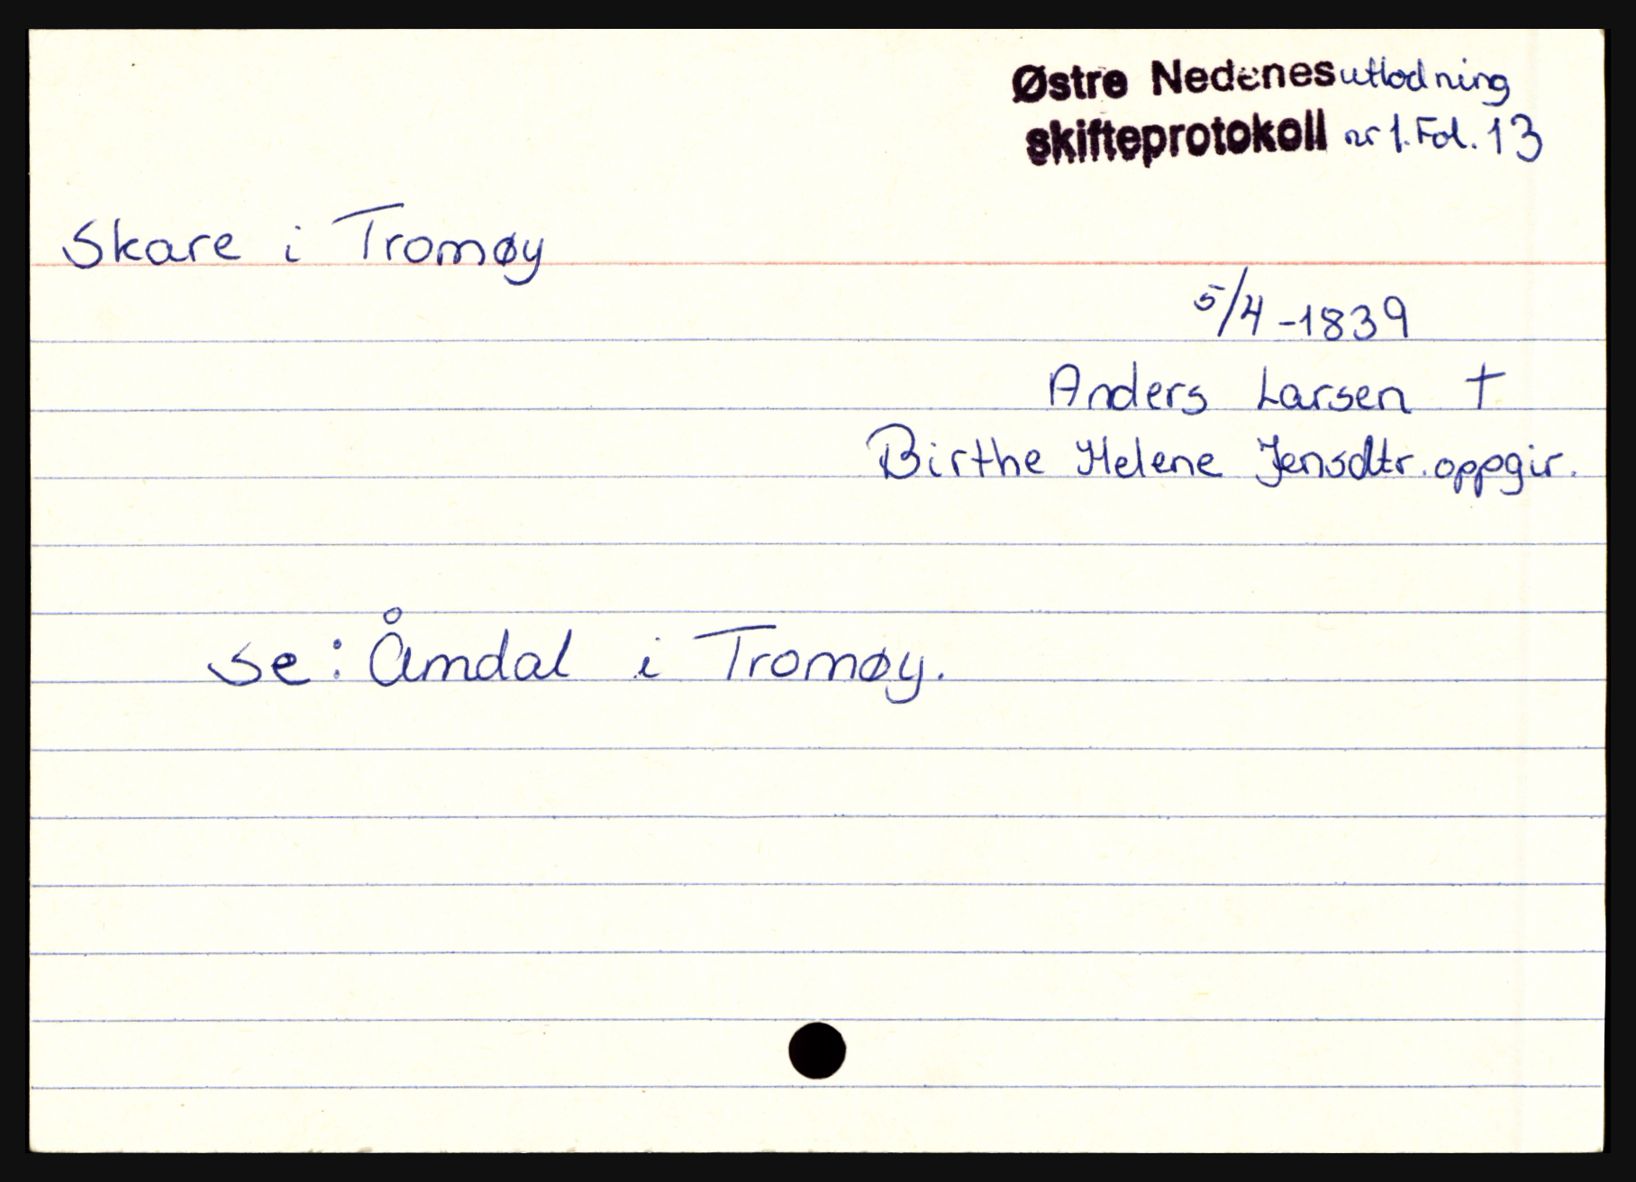 Østre Nedenes utlodning
skifteprotokoll nr 1. Fol. 13
Skare i Tromøy
5/4 - 1839
Anders Larsen †
Birthe Helene Jensdtr. oppgir.
se: Åmdal i Tromøy.